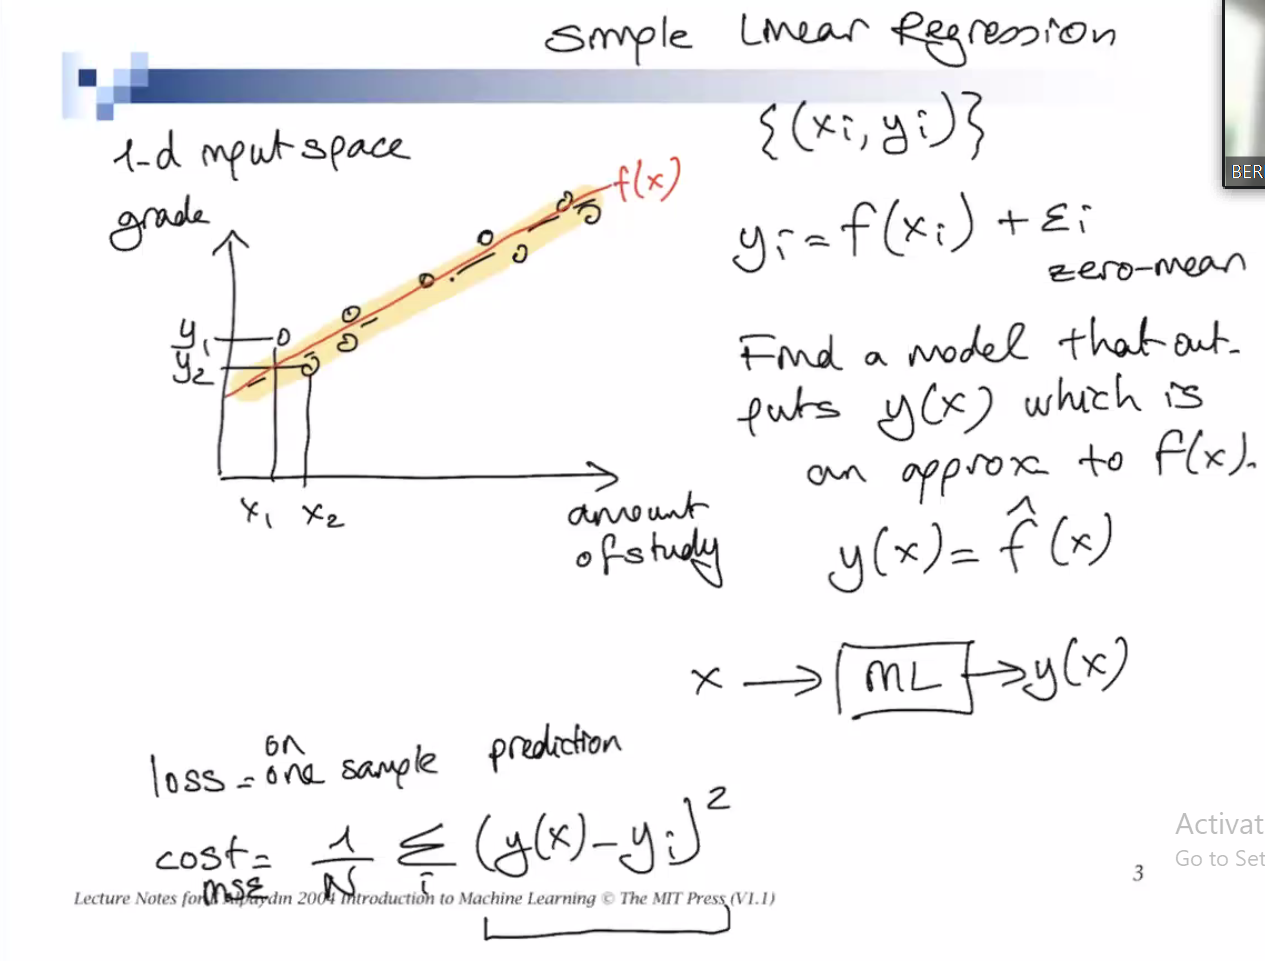 Simple Linear Regression
{(xi, yi)}
1-d input space
grade
f(x)
yi = f(xi) + εi
zero-mean
y1
y2
x1 x2
amount
of study
Find a model that out-
puts y(x) which is
an approx to f(x).
y(x) = f̂(x)
x → ML → y(x)
on
loss = one sample prediction
cost = 1/N Σi (y(x) - yi)²
MSE
Lecture Notes for 2004 Introduction to Machine Learning © The MIT Press (V1.1)
3
BER
Activat
Go to Set